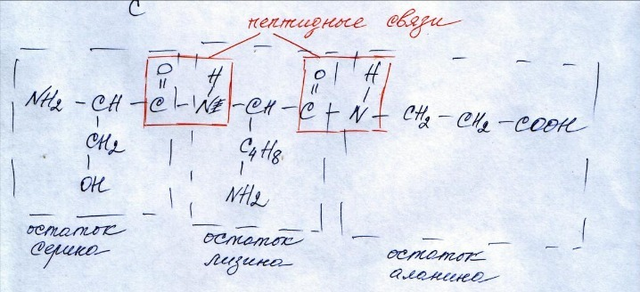 С
пептидные связи
O H O H
NH2 – CH – C – N – CH – C – N – CH2 – CH2 – COOH
CH2 C4H8
OH NH2
остаток серина
остаток лизина
остаток аланина